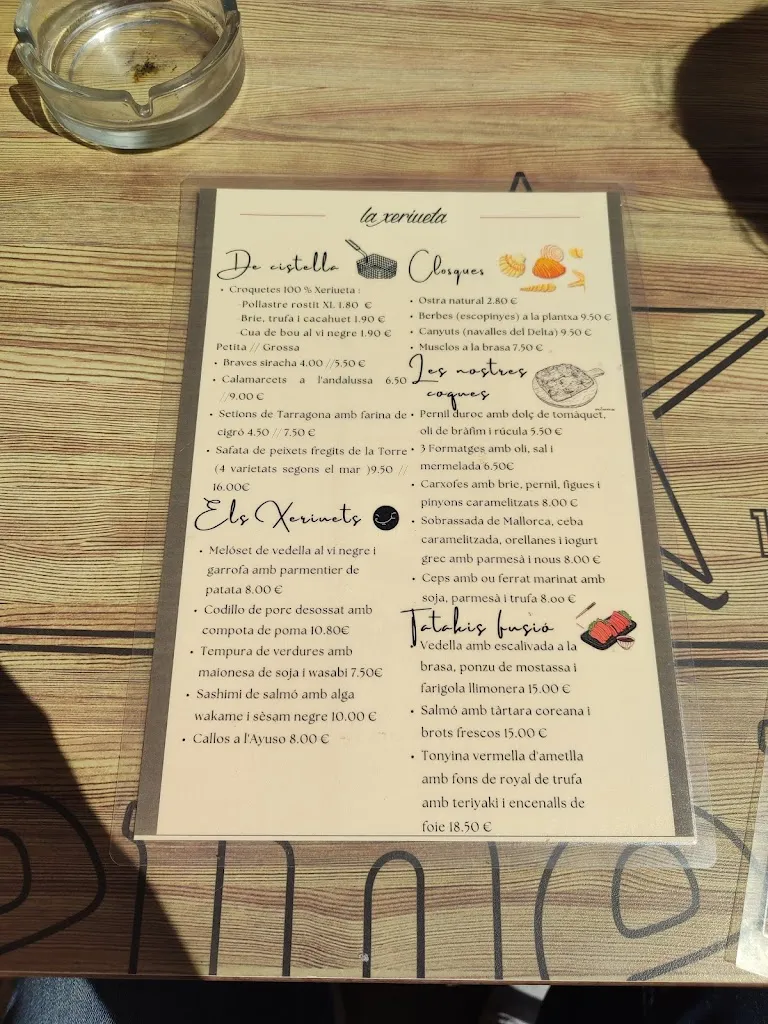 la xeriueta
De cistella
• Croquetes 100 % Xeriueta :
-Pollastre rostit XL 1.80 €
Brie, trufa i cacahuet 1.90 €
-Cua de bou al vi negre 1.90 €
Petita // Grossa
• Braves siracha 4.00 //5.50 €
• Calamarcets a l'andalussa 6.50
//9.00 €
• Setions de Tarragona amb farina de
cigró 4.50 // 7.50 €
• Safata de peixets fregits de la Torre
(4 varietats segons el mar )9.50 //
16.00€
Els Xeriuets
• Melóset de vedella al vi negre i
garrofa amb parmentier de
patata 8.00 €
• Codillo de porc desossat amb
compota de poma 10.80€
• Tempura de verdures amb
maionesa de soja i wasabi 7.50€
• Sashimi de salmó amb alga
wakame i sèsam negre 10.00 €
• Callos a l'Ayuso 8.00 €
Closques
• Ostra natural 2.80 €
• Berbes (escopinyes) a la plantxa 9.50 €
• Canyuts (navalles del Delta) 9.50 €
• Musclos a la brasa 7.50 €
Les nostres
coques
• Pernil duroc amb dolç de tomàquet,
oli de bràfim i rúcula 5.50 €
• 3 Formatges amb oli, sal i
mermelada 6.50€
• Carxofes amb brie, pernil, figues i
pinyons caramelitzats 8.00 €
• Sobrassada de Mallorca, ceba
caramelitzada, orellanes i iogurt
grec amb parmesà i nous 8.00 €
• Ceps amb ou ferrat marinat amb
soja, parmesà i trufa 8.00 €
Tatakis fusió
Vedella amb escalivada a la
brasa, ponzu de mostassa i
farigola llimonera 15.00 €
• Salmó amb tàrtara coreana i
brots frescos 15.00 €
• Tonyina vermella d'ametlla
amb fons de royal de trufa
amb teriyaki i encenalls de
foie 18.50 €